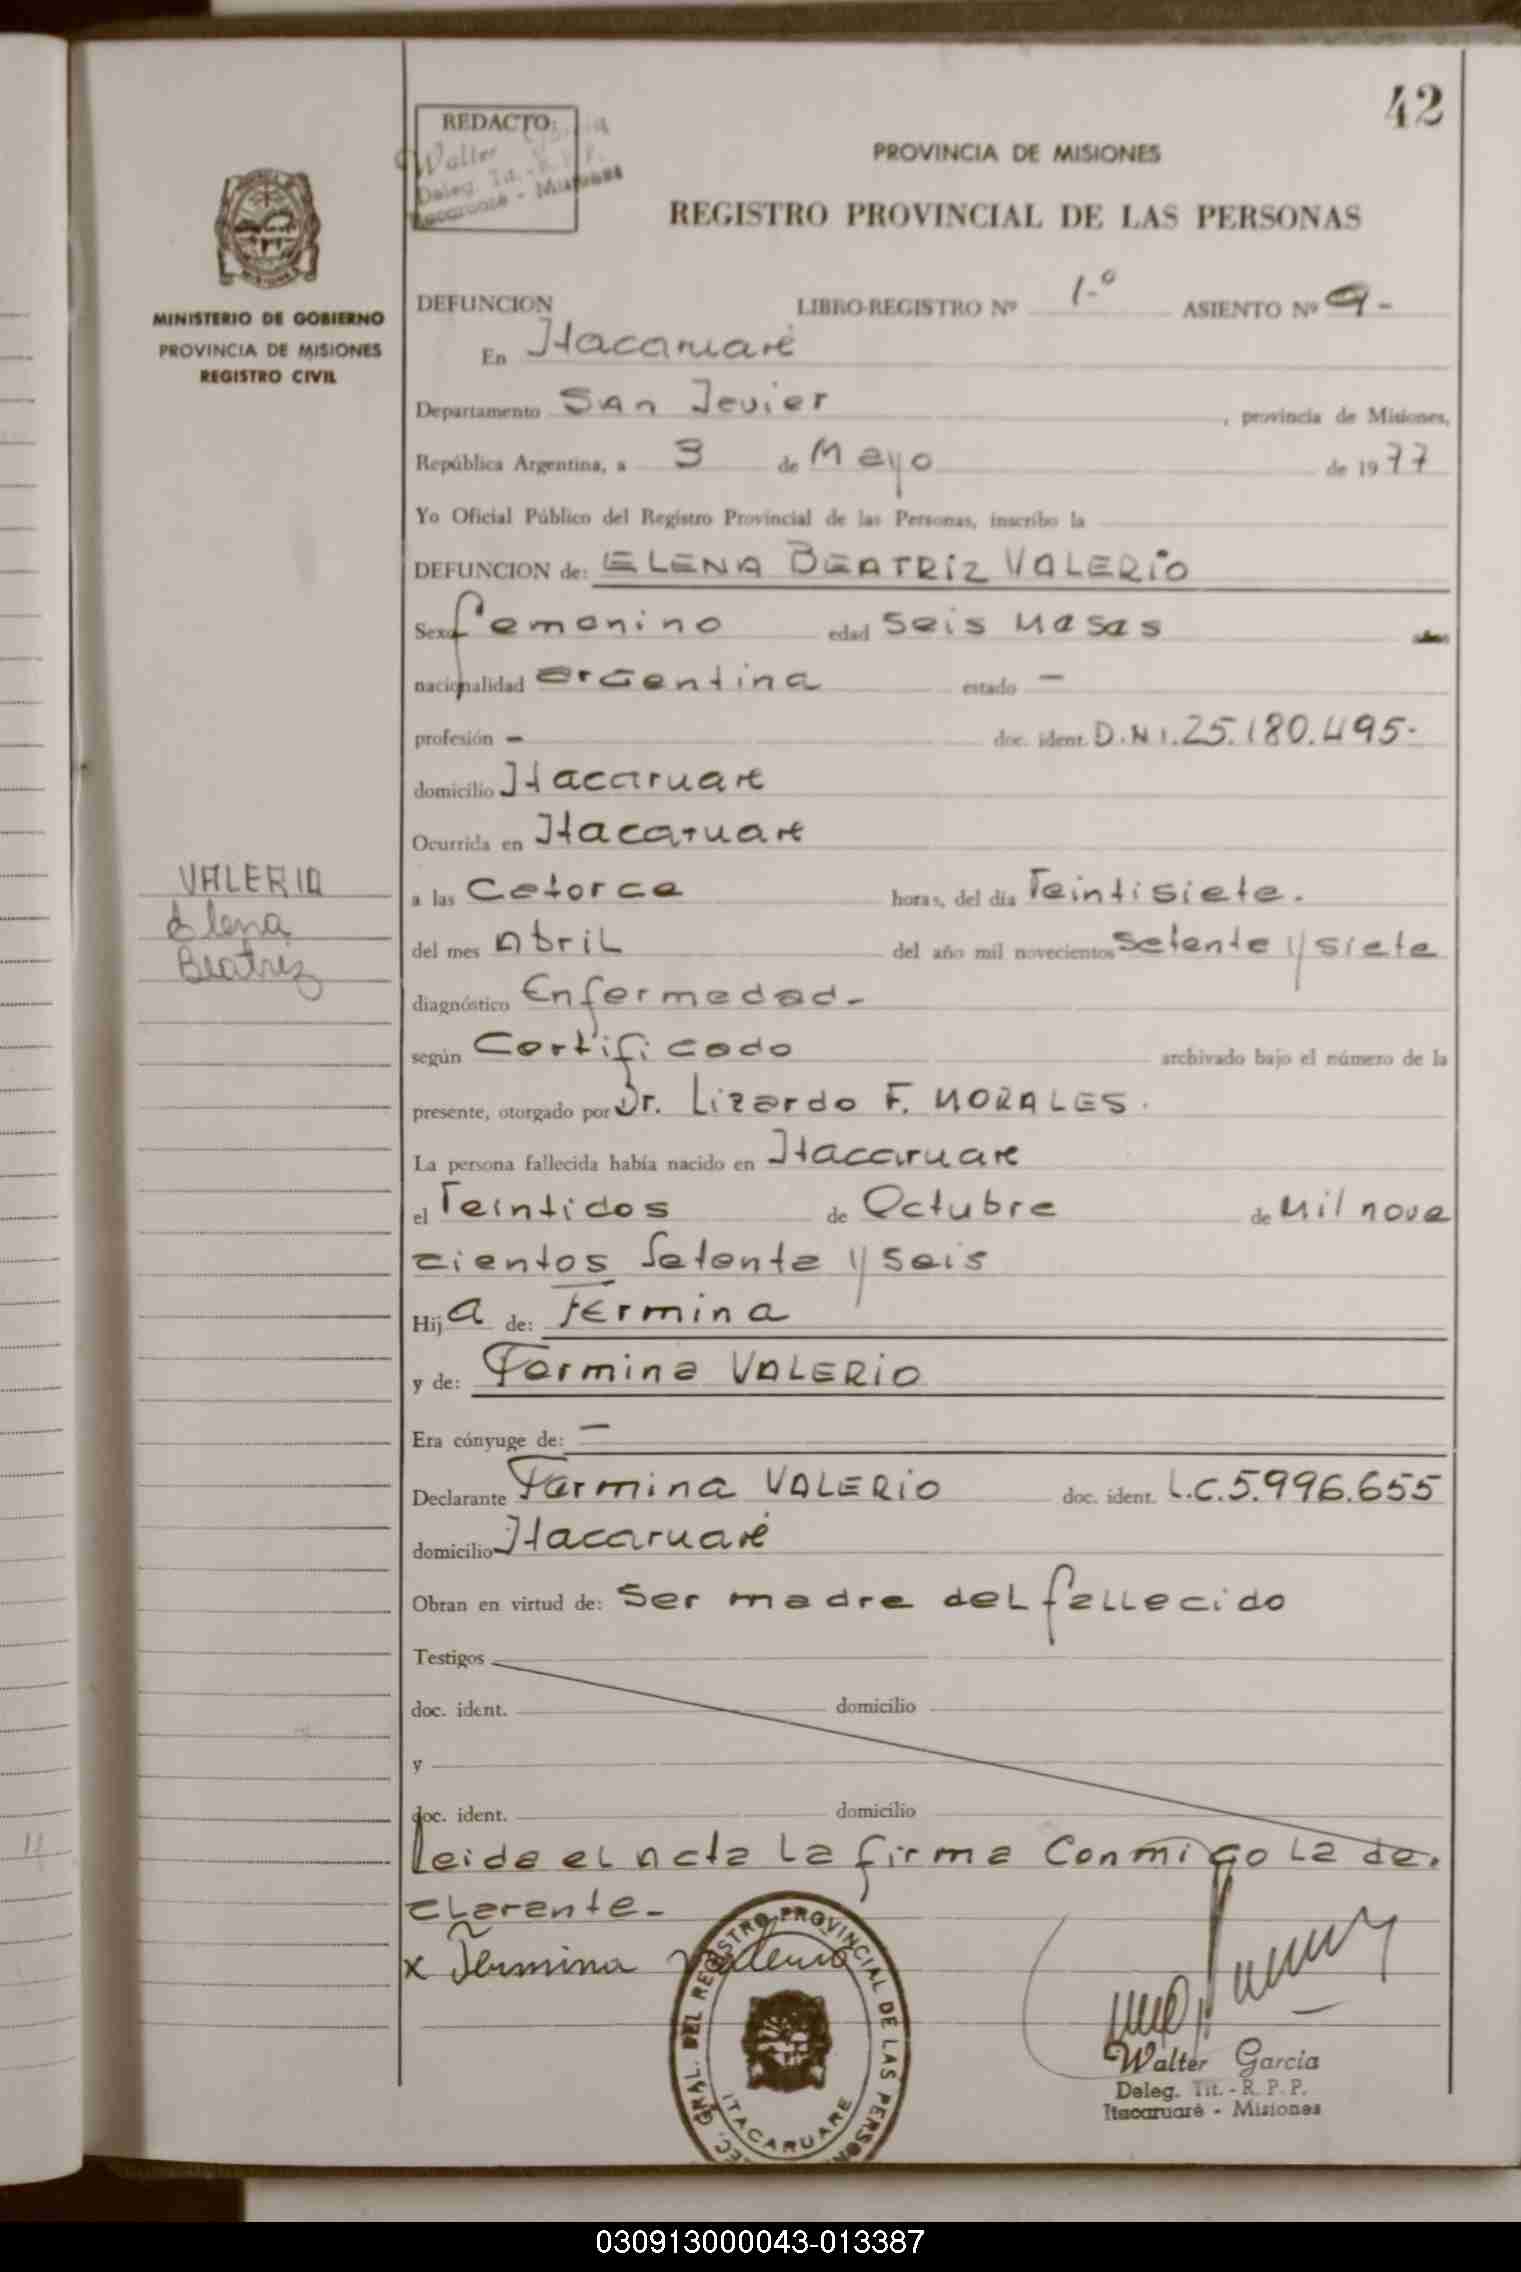 42
REDACTO:
Walter Garcia
Deleg. Tit. - R. P. P.
Itacaruaré - Misiones
PROVINCIA DE MISIONES
REGISTRO PROVINCIAL DE LAS PERSONAS
MINISTERIO DE GOBIERNO
PROVINCIA DE MISIONES
REGISTRO CIVIL
DEFUNCION LIBRO-REGISTRO Nº 1-º ASIENTO Nº 9-
En Itacaruaré
Departamento San Javier, provincia de Misiones,
República Argentina, a 3 de Mayo de 1977
Yo Oficial Público del Registro Provincial de las Personas, inscribo la
DEFUNCION de: ELENA BEATRIZ VALERIO
Sexo femenino edad seis meses
nacionalidad argentina estado -
profesión - doc. ident. D.N.I. 25.180.495-
domicilio Itacaruaré
Ocurrida en Itacaruaré
a las Catorce horas, del día Veintisiete.
del mes Abril del año mil novecientos setenta y siete
diagnóstico Enfermedad-
según Certificado archivado bajo el número de la
presente, otorgado por Dr. Lizardo F. MORALES.
La persona fallecida había nacido en Itacaruaré
el Veintidos de Octubre de Mil nove
cientos Setenta y seis
Hija de: Fermina
y de: Fermina VALERIO
Era cónyuge de: -
Declarante Fermina VALERIO doc. ident. L.C. 5.996.655
domicilio Itacaruaré
Obran en virtud de: Ser madre del fallecido
Testigos
doc. ident. domicilio
y
doc. ident. domicilio
Leida el Acta La firma Conmigo La de.
clarante-
x Fermina Valerio
VALERIO
Elena
Beatriz
GRAL. DEL REGISTRO PROVINCIAL DE LAS PERSON
ITACARUARE
Walter Garcia
Deleg. Tit. - R. P. P.
Itacaruaré - Misiones
030913000043-013387